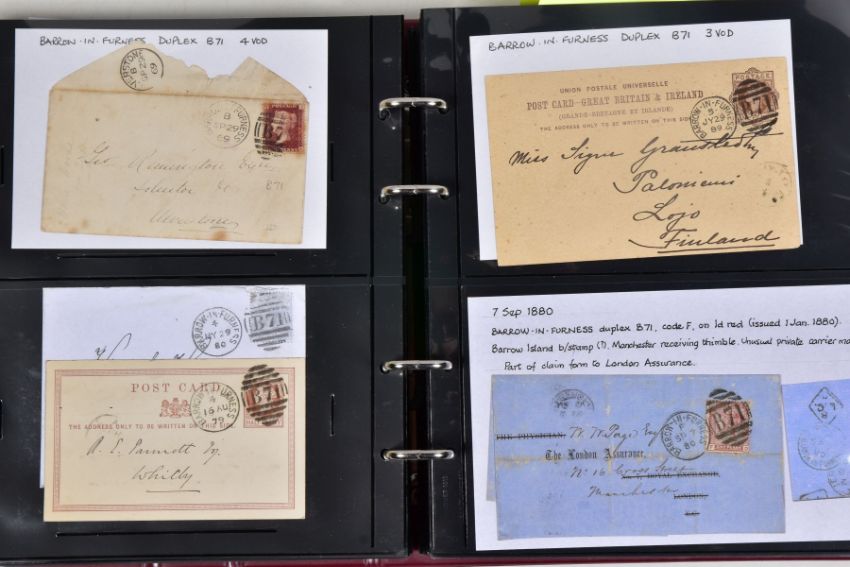 BARROW-IN-FURNESS DUPLEX B71 4VOD
ULVERSTONE
B
SP 29
69
BARROW-IN-FURNESS
B
SP 29
69
B71
Solicitor
Ulverstone
B71
BARROW-IN-FURNESS DUPLEX B71 3VOD
UNION POSTALE UNIVERSELLE
POST CARD-GREAT BRITAIN & IRELAND
(GRANDE-BRETAGNE ET IRLANDE)
THE ADDRESS ONLY TO BE WRITTEN ON THIS SIDE
POSTAGE
BARROW-IN-FURNESS
JY 29
89
B71
Miss Signe
Paloniemi
Lojo
Finland
BARROW-IN-FURNESS
JY 29
80
B71
POST CARD
THE ADDRESS ONLY TO BE WRITTEN ON THIS SIDE.
BARROW-IN-FURNESS
16 AU
79
B71
Whitby
7 Sep 1880
BARROW-IN-FURNESS duplex B71, code F, on 1d red (issued 1 Jan. 1880).
Barrow Island b/stamp (?). Manchester receiving thimble. Unusual private carrier
Part of claim form to London Assurance.
BARROW-IN-FURNESS
F
SP 7
80
B71
ONE PENNY
THE PHYSICIAN, W. W. Page Esq
The London Assurance,
No 16 Cross Street
ROYAL EXCHANGE
Manchester
LONDON